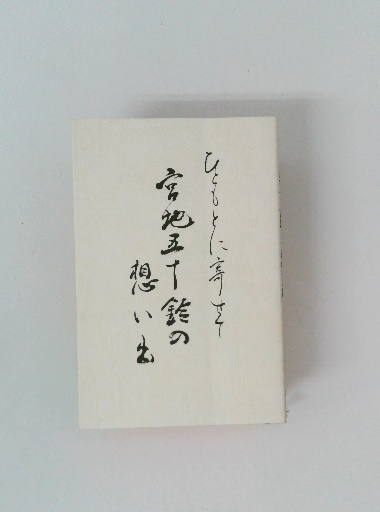 ひともとに寄せて
宮地五十鈴の
想い出